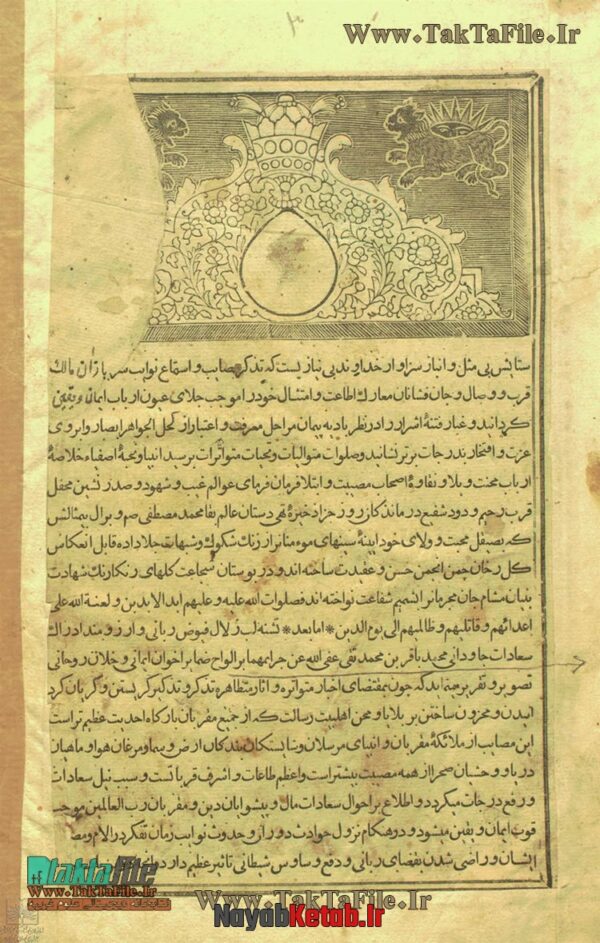 Www.TakTaFile.Ir
ستایش بی مثل و انباز سزاوار خداوند بی نیازیست که تذکر مصایب و استماع نوایب سربازان مالک
قرب و وصال و جان فشانان معارک اطاعت و امتثال خود را موجب جلای عیون ارباب ایمان و یقین
کردانید و غبار فتنهٔ اشرار را در نظر بادیه پیمان مراحل معرفت و اعتبار از کحل الجواهر ابصار و ابروی
عزت و افتخار بدرجات برتر نشانید و صلوات متوالیات و تحیات متواترات بر سید انبیا و نخبهٔ اصفیاء خلاصهٔ
ارباب محنت و بلا و نقاوهٔ اصحاب مصیبت و ابتلا فرمان فرمای عوالم غیب و شهود و صدر نشین محفل
قرب رحیم ودود شفیع درماندکان روز جزا ذخیرهٔ تهی دستان عالم بقا محمد مصطفی صم و برال بیمثالش
که بصیقل محبت و ولای خود اینهٔ سینهای مومنانرا از زنک شکوک و شبهات جلا داده قابل انعکاس
کل رخان چمن انجمن حسن و عقیدت ساخته اند و در بوستان شجاعت کلهای رنکارنک شهادت
بنیان مشام جان محرمانرا شمیم شفاعت نواخته اند فصلوات الله علیه و علیهم ابد الابدین و لعنة الله علی
اعدائهم و قاتلیهم و ظالمیهم الی یوم الدین * اما بعد * تشنه لب زلال فیوض ربانی و ارزومند ادراک
سعادات جاودانی محمد باقر بن محمد تقی عفی الله عن جرایمهما بر الواح ضمایر اخوان ایمانی و خلان روحانی
تصویر و تقریر مینماید که چون بمقتضای اخبار متواتره و اثار متظاهره تذکر و تذکیر کریستن و کریان کرد
انیدن و محزون ساختن بر بلایا و محن اهلبیت رسالت که از جمیع مقربان بارکاه احدیت عظیم تر است
این مصایب از ملائکهٔ مقربان و انبیای مرسلان و شایستکان بندکان ارض و سما و مرغان هوا و ماهیان
دریا و وحشیان صحرا از همه مصیبت بیشتر است و اعظم طاعات و اشرف قرباتست و سبب نیل سعادات
و رفع درجات میکردد و اطلاع بر احوال سعادات مال پیشوایان دین و مقربان رب العالمین موجب
قوت ایمان و یقین میشود و در هنکام نزول حوادث دوران و حدوث نوایب زمان تفکر در الام و مصا
ایشان و راضی شدن بقضای ربانی و دفع وساوس شیطانی تاثیر عظیم دارد
taktafile
Www.TakTaFile.Ir
Www.TakTaFile.Ir
NayabKetab.Ir